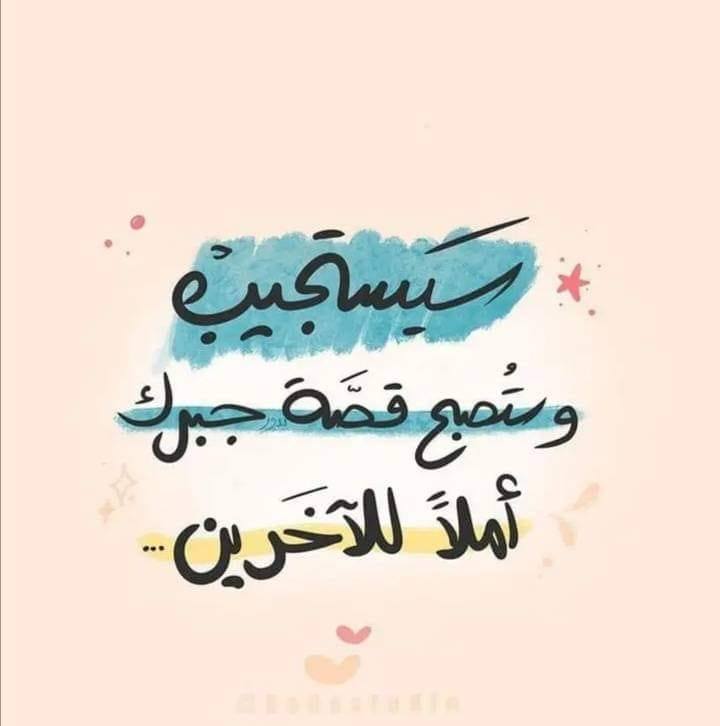 سَيستجيبُ
وستُصبح قصَّة جبرك
أملاً للآخَرين...